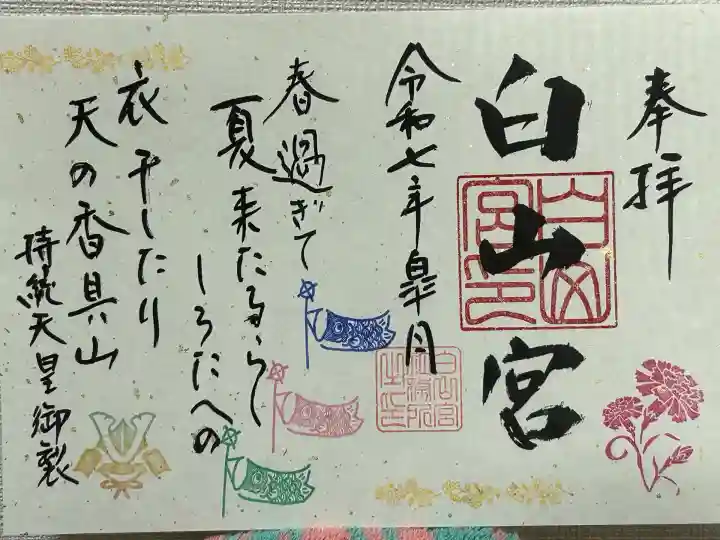 奉拝
白山宮
白山宮印
令和七年皐月
春過ぎて
夏来たるらし
しろたへの
衣干したり
天の香具山
持統天皇御製